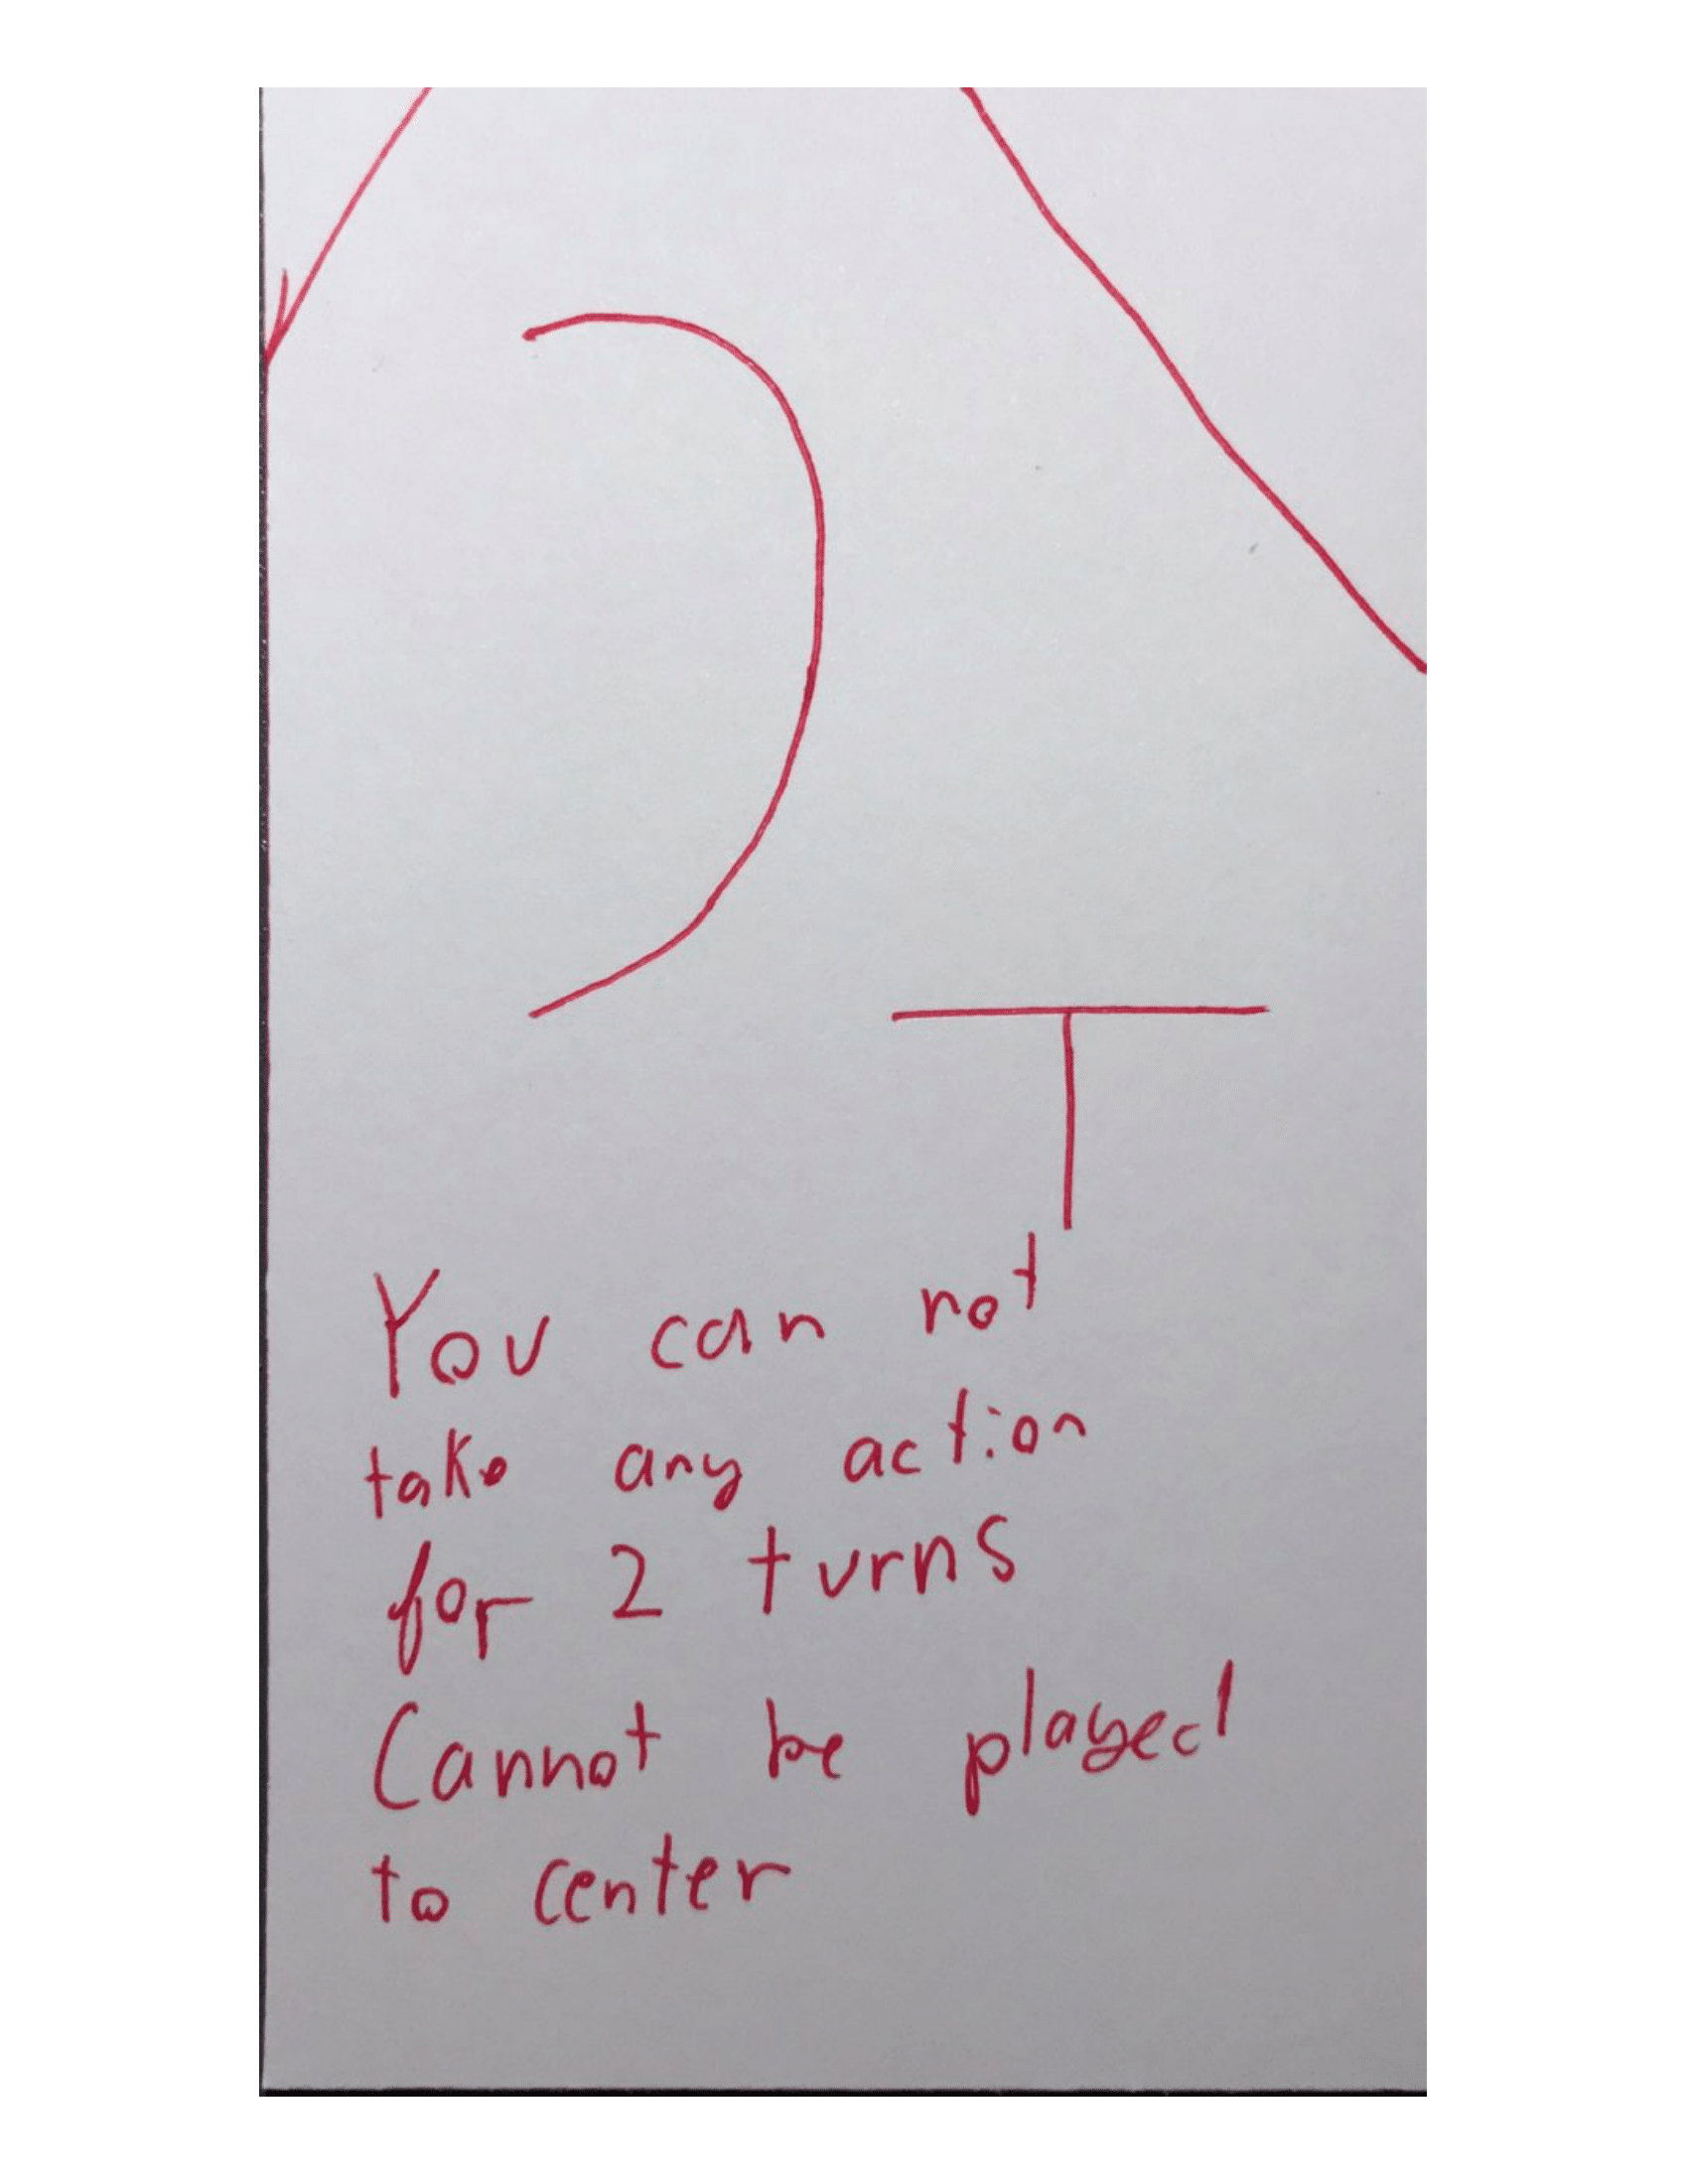 T
You can not
take any action
for 2 turns
Cannot be played
to center